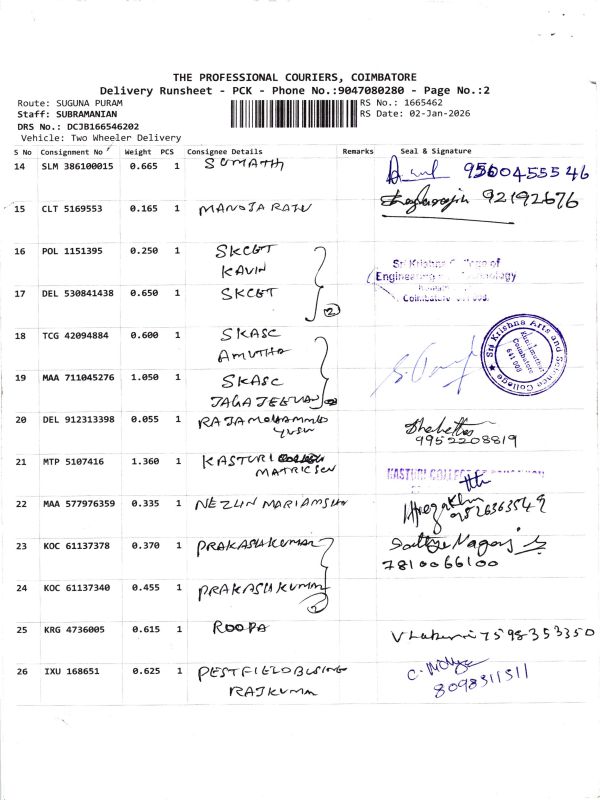 THE PROFESSIONAL COURIERS, COIMBATORE
Delivery Runsheet - PCK - Phone No.:9047080280 - Page No.:2
Route: SUGUNA PURAM
RS No.: 1665462
Staff: SUBRAMANIAN
RS Date: 02-Jan-2026
DRS No.: DCJB166546202
Vehicle: Two Wheeler Delivery
S No Consignment No Weight PCS Consignee Details Remarks Seal & Signature
14 SLM 386100015 0.665 1 SUMATHI 9500455546
15 CLT 5169553 0.165 1 MANOJA RAJU 92192676
16 POL 1151395 0.250 1 SKCET
KAVIN
Sri Krishna College of
Engineering Technology
17 DEL 530841438 0.650 1 SKCET
Coimbatore
2
18 TCG 42094884 0.600 1 SKASC
AMUTHA
Sri Krishna Arts and Science College
Kuniamuthur
Coimbatore
641 008
19 MAA 711045276 1.050 1 SKASC
JAGAJEEVAN
20 DEL 912313398 0.055 1 RAJAMOHAMMED
9952208819
21 MTP 5107416 1.360 1 KASTURI
KASTURI COLLEGE OF EDUCATION
22 MAA 577976359 0.335 1
9526363549
23 KOC 61137378 0.370 1 PRAKASHKUMAR
7810066100
24 KOC 61137340 0.455 1 PRAKASHKUMAR
2
25 KRG 4736005 0.615 1 ROOPA 7598353350
26 IXU 168651 0.625 1
RAJKUMAR
8098311311